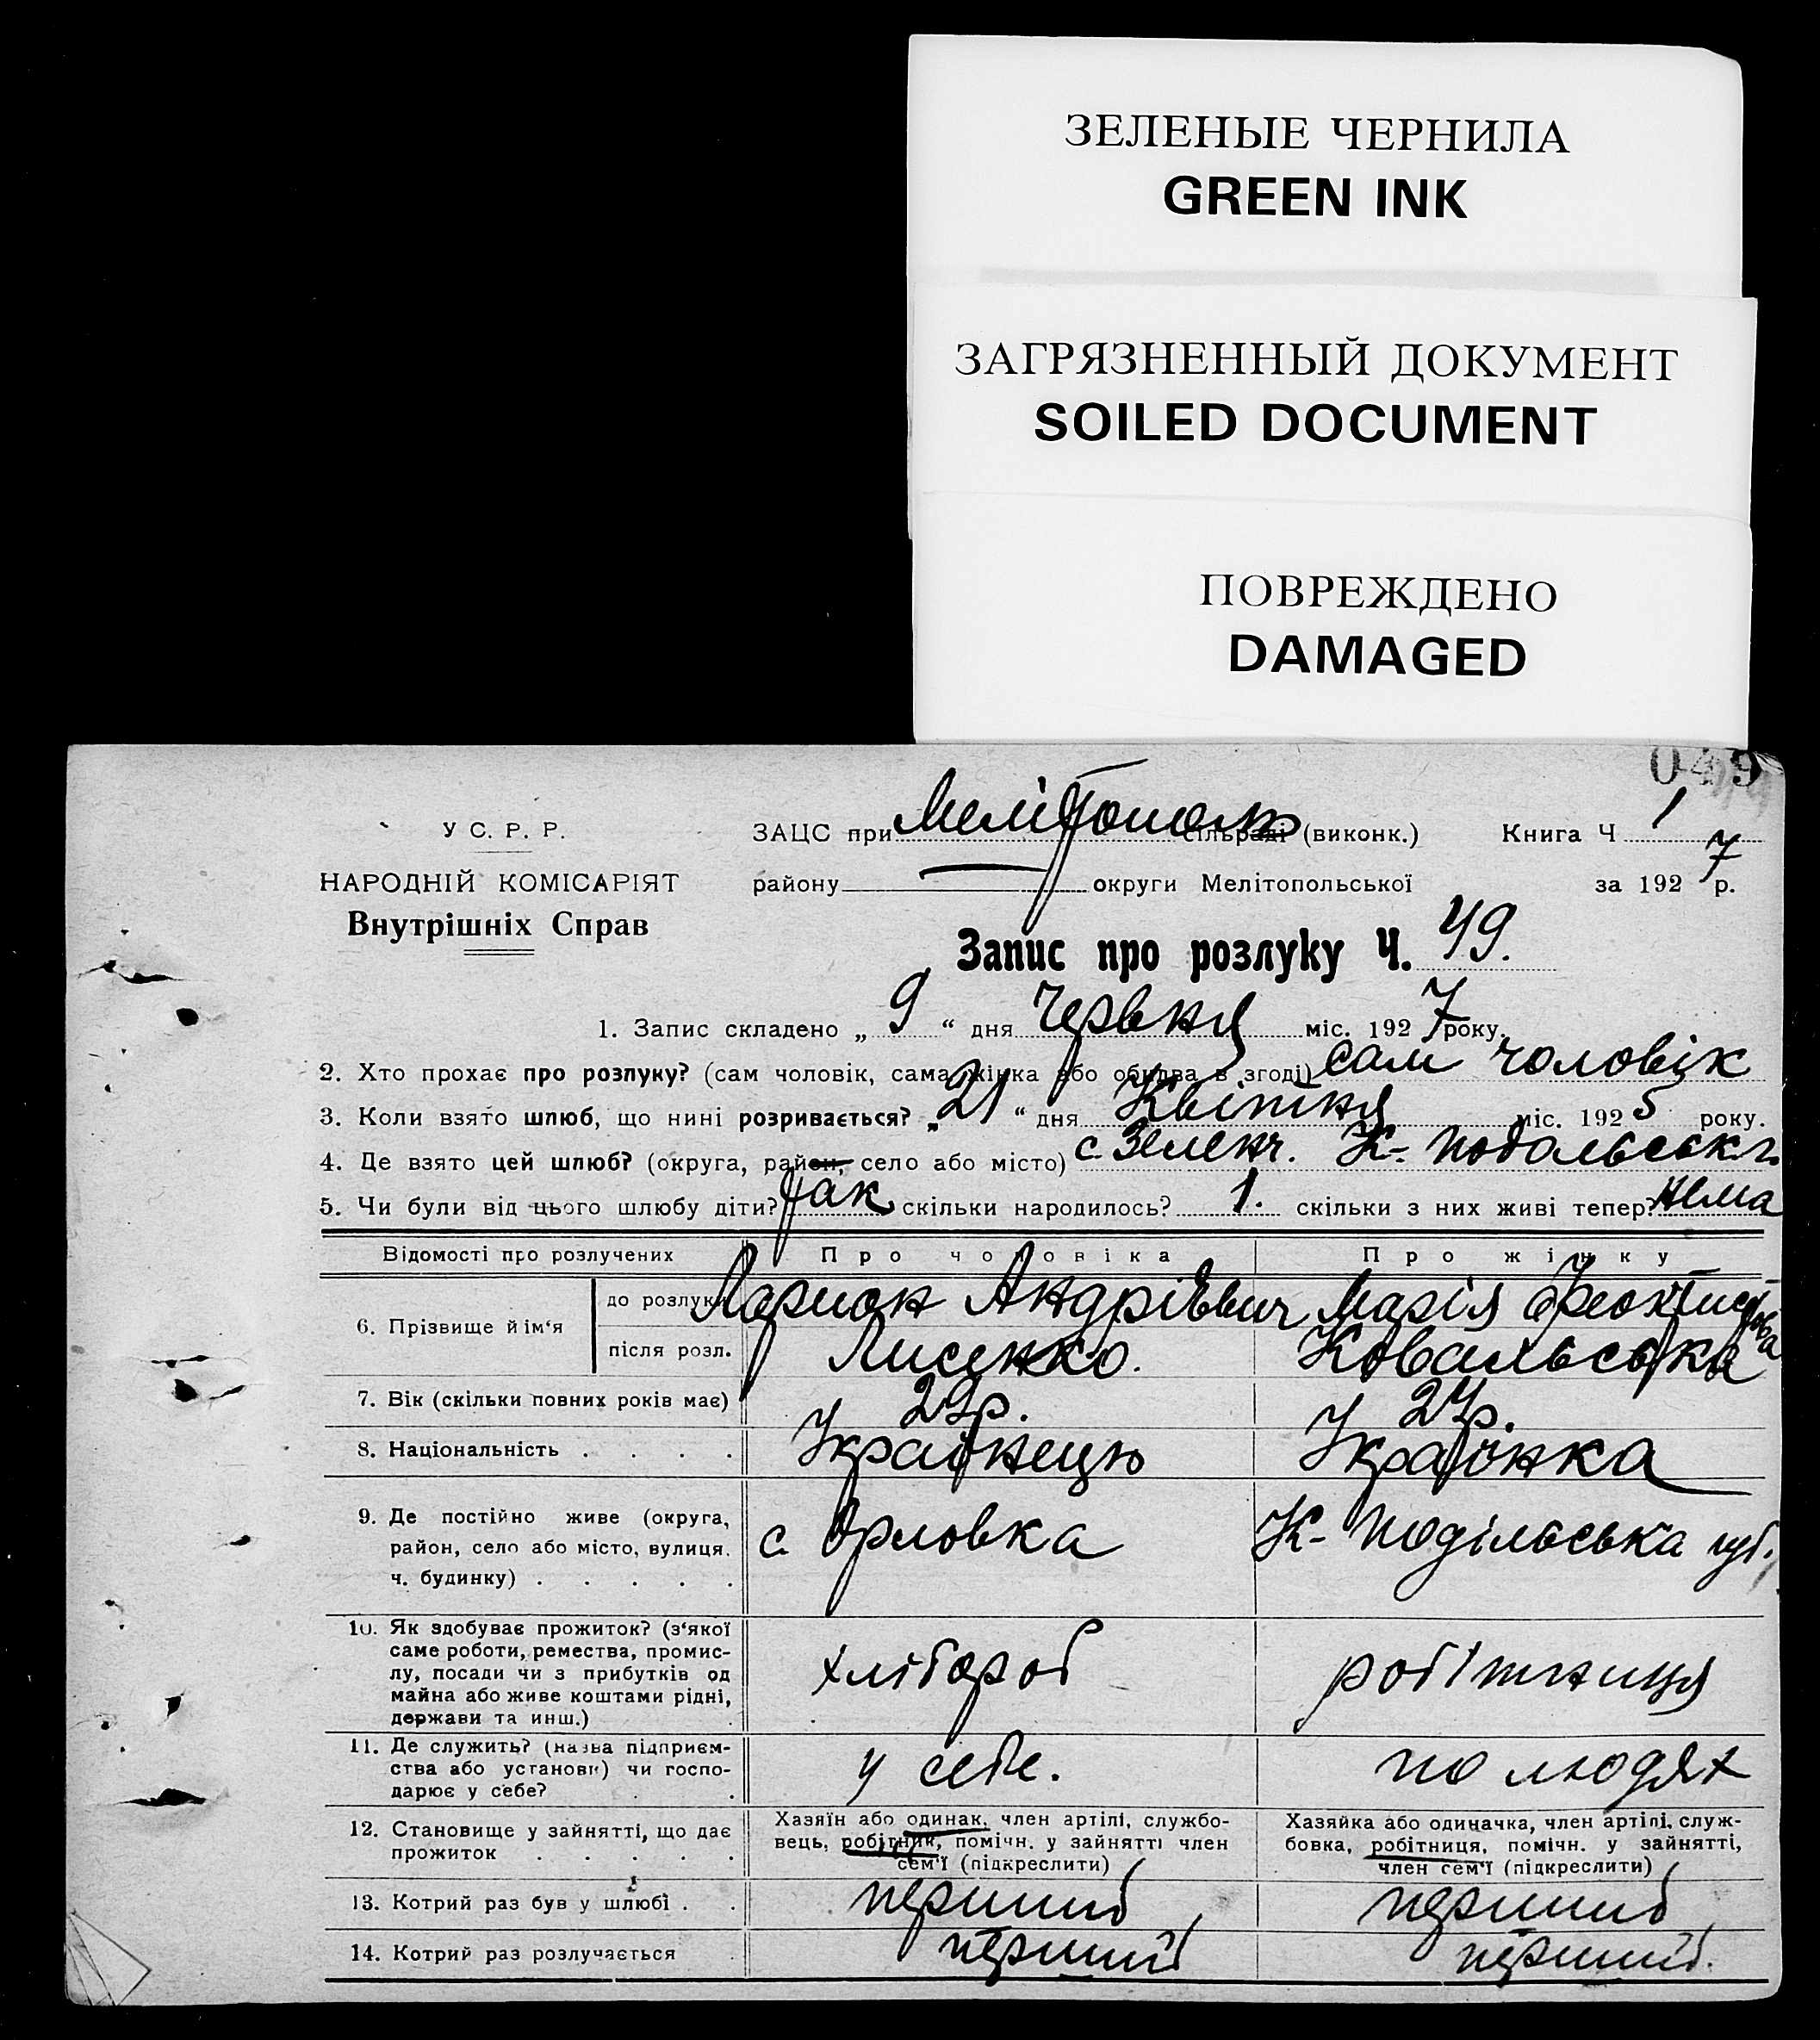 ЗЕЛЕНЫЕ ЧЕРНИЛА
GREEN INK
ЗАГРЯЗНЕННЫЙ ДОКУМЕНТ
SOILED DOCUMENT
ПОВРЕЖДЕНО
DAMAGED
049
У С. Р. Р.
НАРОДНІЙ КОМІСАРІЯТ
Внутрішніх Справ
ЗАЦС при Мелітополь сільраді (виконк.) Книга Ч 1
району — округи Мелітопольської за 1927 р.
Запис про розлуку Ч. 49.
1. Запис складено „ 9 “ дня Червня міс. 1927 року.
2. Хто прохає про розлуку? (сам чоловік, сама жінка або обидва в згоді) сам чоловік
3. Коли взято шлюб, що нині розривається? „ 21 “ дня Квітня міс. 1925 року.
4. Де взято цей шлюб? (округа, район, село або місто) с. Зеленч. К-Подольськ
5. Чи були від цього шлюбу діти? Так скільки народилось? 1. скільки з них живі тепер? Нема
Відомості про розлучених Про чоловіка Про жінку
6. Прізвище й ім‘я
до розлуки Ларион Андріевич Марія Феоктистова
після розл. Лисенко. Ковальська
7. Вік (скільки повних років має) р. р.
8. Національність . . . . Українець Українка
9. Де постійно живе (округа, район, село або місто, вулиця, ч. будинку) . . . . . с. Орловка К-Подільська губ.
10. Як здобуває прожиток? (з‘якої саме роботи, ремества, промислу, посади чи з прибутків од майна або живе коштами рідні, держави та инш.) хлібороб робітниця
11. Де служить? (назва підприємства або установи) чи господарює у себе? у себе. по людях
12. Становище у зайнятті, що дає прожиток . . . . .
Хазяїн або одинак, член артілі, службовець, робітник, помічн. у зайнятті член сем‘ї (підкреслити)
Хазяйка або одиначка, член артілі, службовка, робітниця, помічн. у зайнятті, член сем‘ї (підкреслити)
13. Котрий раз був у шлюбі . . перший перший
14. Котрий раз розлучається перший перший.